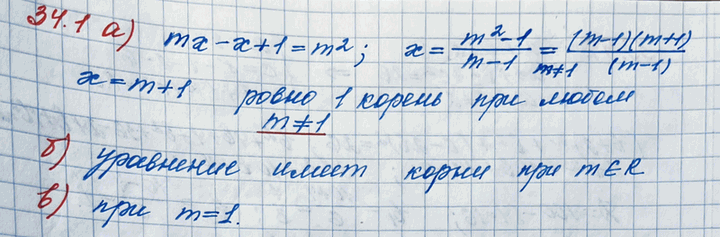 34.1 а) mx - x + 1 = m²; x = (m² - 1)/(m - 1) =_{m≠1} ((m-1)(m+1))/(m-1)
x = m + 1 ровно 1 корень при любом
m ≠ 1
б) уравнение имеет корни при m ∈ R
в) при m = 1.